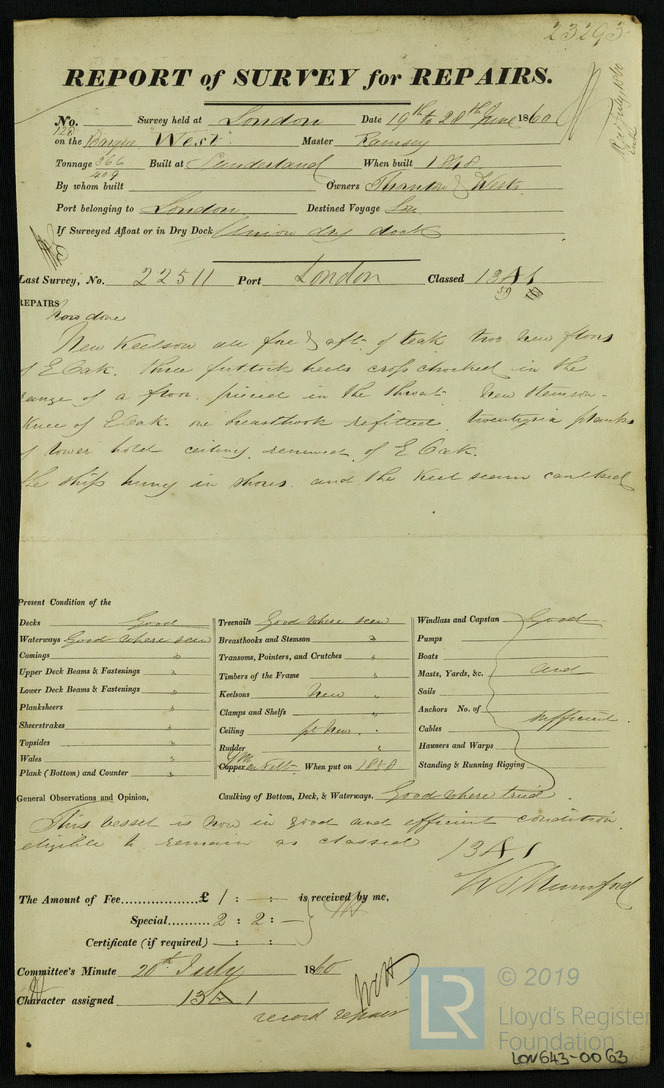 23293
REPORT of SURVEY for REPAIRS.
No. 128 Survey held at London Date 19th to 28th June 1860
on the Barque West Master Ramsey
Tonnage 366 409 Built at Sunderland When built 1848
By whom built Owners Thornton & West
Port belonging to London Destined Voyage
If Surveyed Afloat or in Dry Dock Union dry dock
Last Survey, No. 22511 Port London Classed 13 A 1
59
REPAIRS
Now done
New Keelson all fore & aft of teak two new floors
of E Oak. three futtock heels cross chocked in the
range of a floor pieced in the throat New Stemson
Knee of E Oak. one breasthook refitted twentysix planks
of lower hold ceiling renewed of E Oak.
the ship hung in shores and the Keel seam caulked
Present Condition of the
Decks Good
Waterways Good where seen
Comings "
Upper Deck Beams & Fastenings "
Lower Deck Beams & Fastenings "
Planksheers "
Sheerstrakes "
Topsides "
Wales "
Plank (Bottom) and Counter "
Treenails Good where seen
Breasthooks and Stemson "
Transoms, Pointers, and Crutches "
Timbers of the Frame "
Keelsons New "
Clamps and Shelfs "
Ceiling pt New "
Rudder "
Copper YM on Felt When put on 1858
Caulking of Bottom, Deck, & Waterways. Good where tried
Windlass and Capstan Good
Pumps
Boats
Masts, Yards, &c. and
Sails
Anchors No. of sufficient.
Cables
Hawsers and Warps
Standing & Running Rigging
General Observations and Opinion,
This vessel is now in good and efficient condition
eligible to remain as classed 13 A 1
W Mumford
The Amount of Fee £ 1 : - : - is received by me,
Special 2 : 2 : -
Certificate (if required) - : - :
Committee's Minute 20th July 1860
Character assigned 13 A 1
record repair
© 2019
LR Lloyd's Register
Foundation
LON643-0063